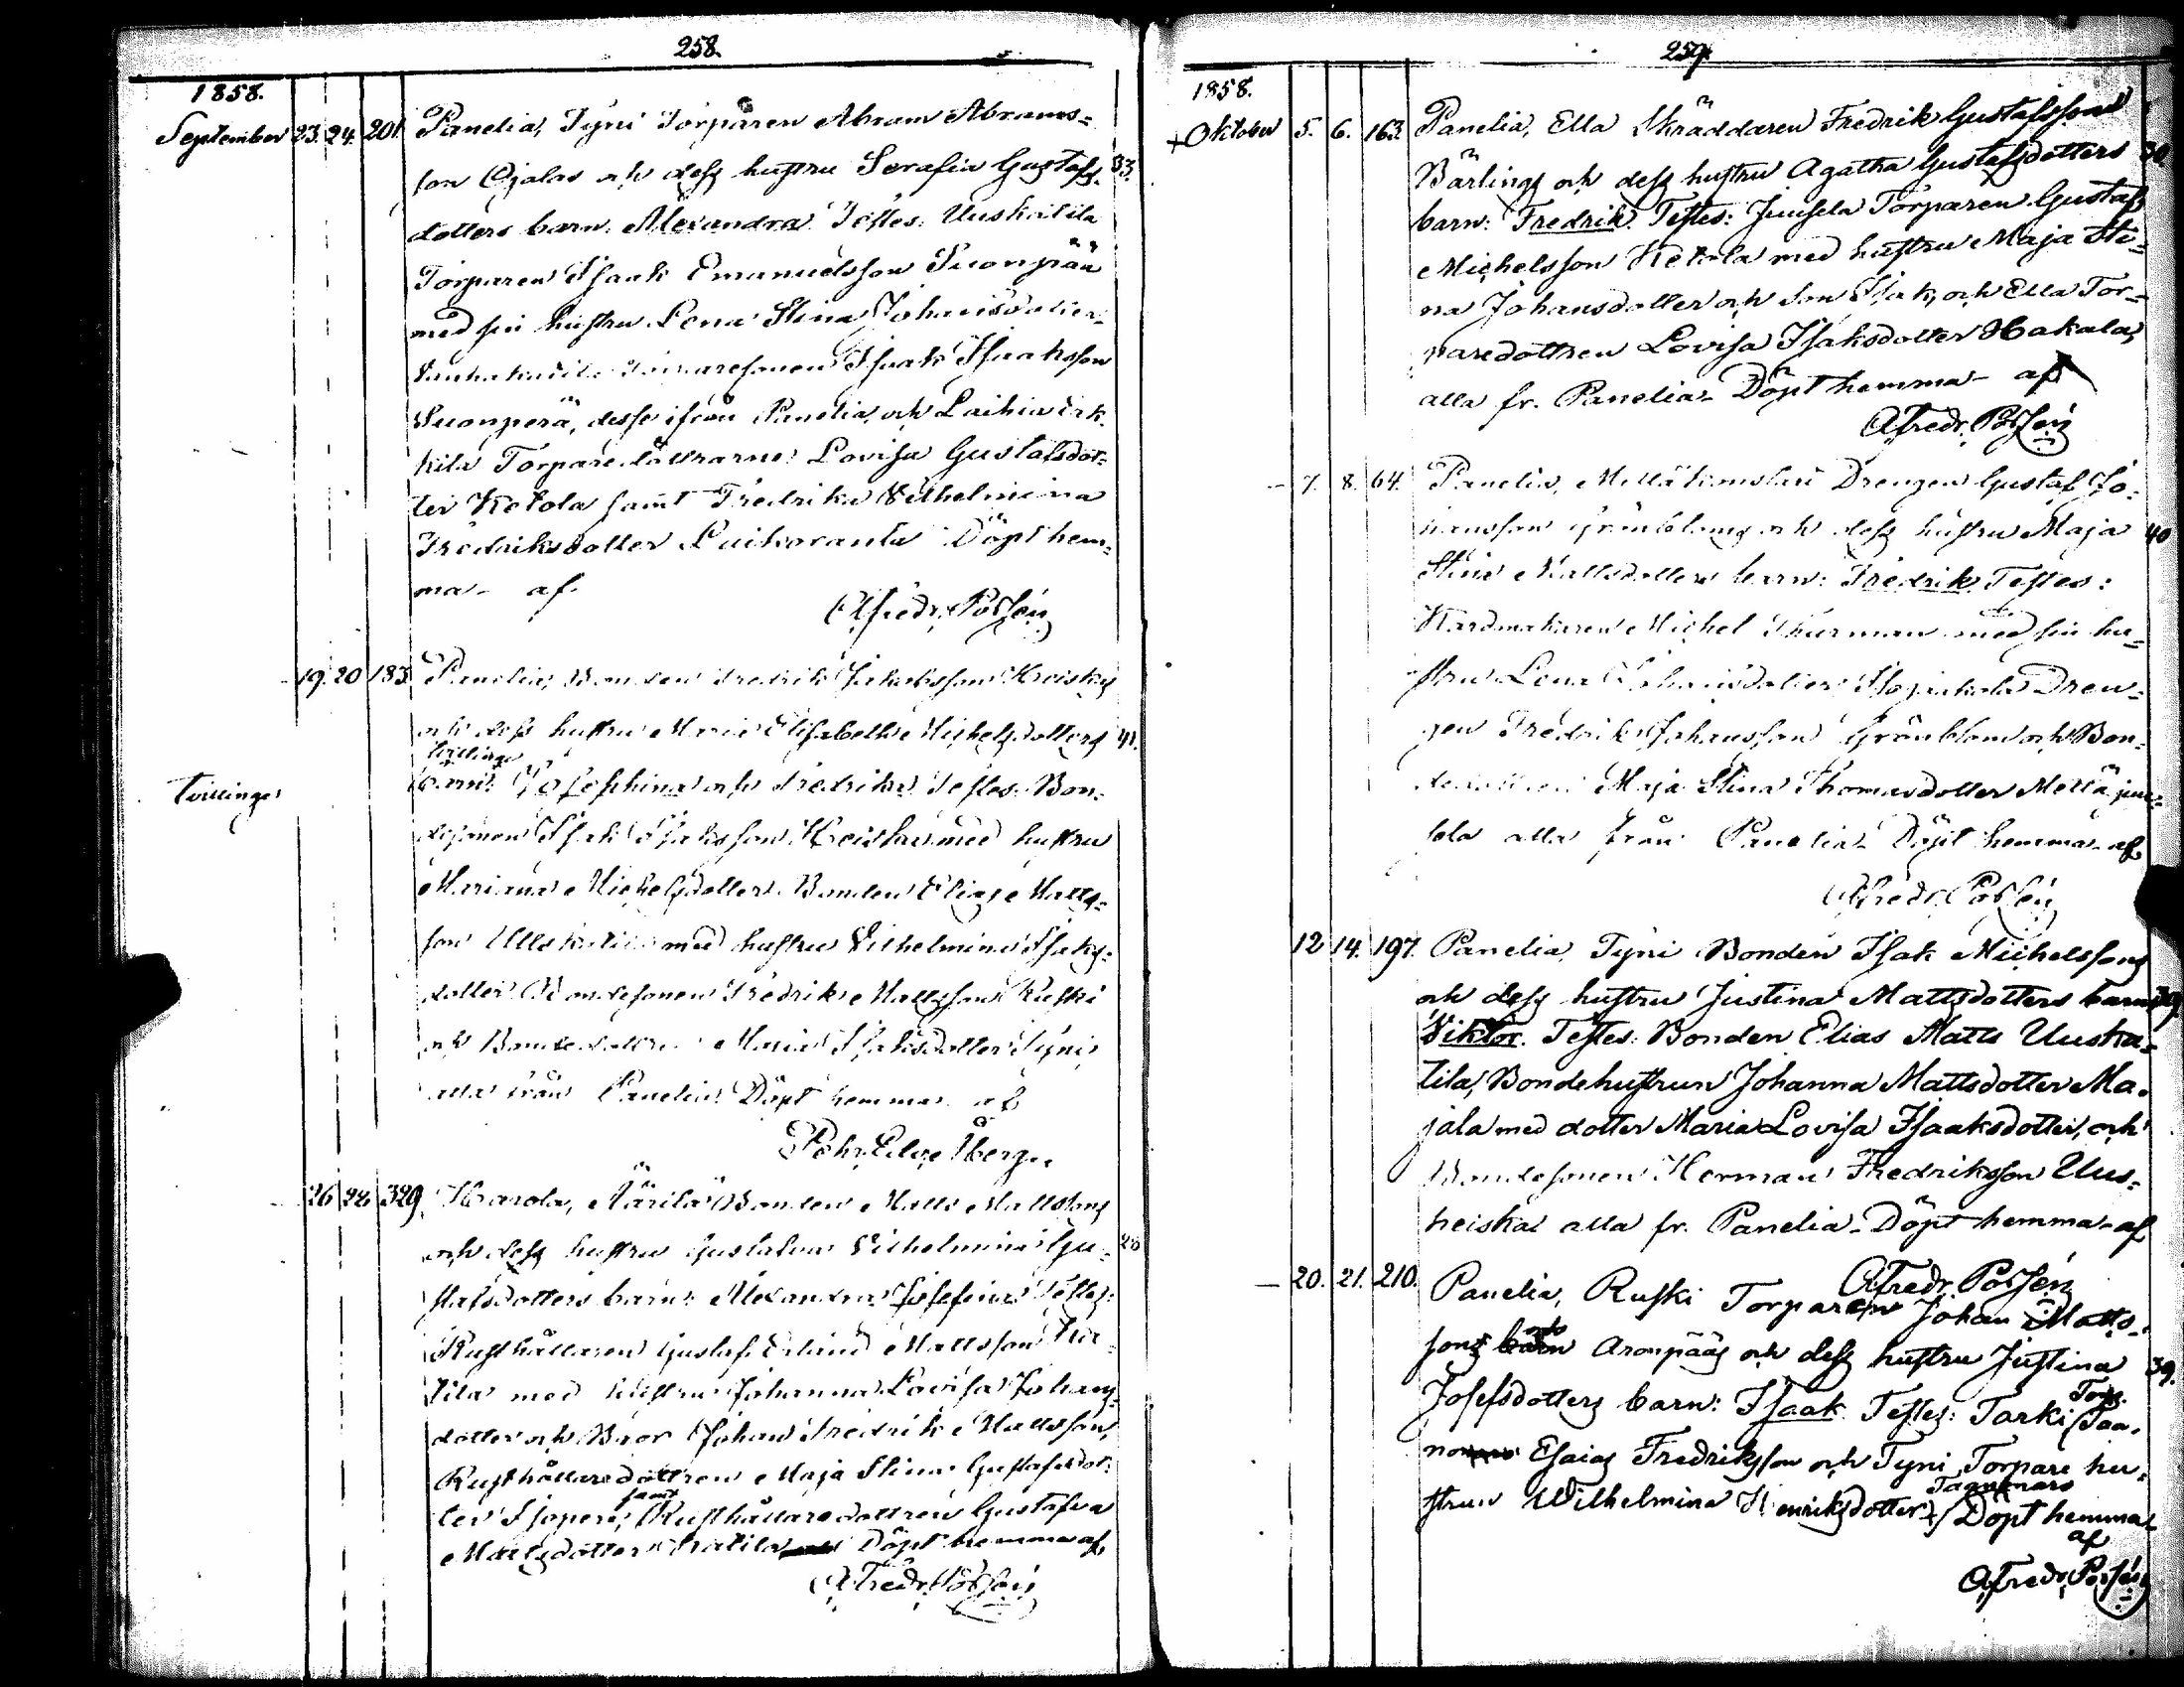 258.
1858.
September 23. 24. 201. Panelia, Tyni Torparen Abram Abrams=
son Ojalas och dess hustru Serafia Gustafs= 33.
dotters barn: Alexandra. Testes: Uuskartila
Torparen Isaak Emanuelsson Suonpää
med sin hustru Lena Stina Johansdotter
Isaak Isaaksson
Suonperä, desse ifrån Panelia, och Laihia
kila Torparedöttrarne: Lovisa Gustafsdot=
ter Ketola samt Fredrika Vilhelmina
Fredriksdotter Laikoranta Döpt hem=
ma af
Alfredr. Polsén
19. 20 183. Panelia, Bonden Fredrik Jakobsson Heiskas
och dess hustru Maria Elisabetha Michelsdotters 41.
tvillinge
Tvillingar barn: Josephina och Fredrika Testes: Bon=
desonen Isak Isaksson Heiska med hustru
Mariana Michelsdotter. Bonden Elias Matts=
son med hustru Vilhelmina Isaks=
dotter Bondesonen Fredrik Mattsson Ruski
och Bondedottren Maria Isaksdotter Tyni,
alla från Panelia. Döpt hemma af
Pehr Edv. Åberg.
26 28 329. Harola, Äärilä Bonden Matts Mattsons
och dess hustru Gustafva Vilhelmina Gu= 28
stafsdotters barn: Alexandra Josefina Testes:
Rusthållaren Gustaf Erland Mattsson
tila med hustru Johanna Lovisa Johans=
dotter och Bror Johan Fredrik Mattsson,
Rusthållaredottren Maja Stina Gustafsdot=
samt
ter Isoperi, Rusthållaredottren Gustafva
Mattsdotter Döpt hemma af
Alfredr. Polsén
259.
1858.
+ Oktober 5. 6. 163. Panelia, Ella Skräddaren Fredrik Gustafssons
Bärlings och dess hustru Agatha Gustafsdotters 30
barn: Fredrik. Testes: Juusela Torparen Gustaf
Michelsson Ketola med hustru Maja Sti=
na Johansdotter och Son Isak, och Ella Tor=
paredottren Lovisa Isaksdotter Hakala,
alla fr. Panelia. Döpt hemma af
Alfredr. Polsén
— 7. 8. 64. Panelia, Drengen Gustaf Jo=
hansson Grönbloms och dess hustru Maja 40
Stina Mattsdotters barn: Fredrik Testes:
Kardmakaren Michel Thurman med sin hu=
stru Lena Johansdotter Dren=
gen Fredrik Johansson Grönblom och Bon=
dedottren Maja Stina Thomasdotter Mellä juu=
sela alla från Panelia. Döpt hemma af
Alfredr. Polsén
12 14. 197. Panelia Tyni Bonden Isak Michelssons
och dess hustru Justina Mattsdotters barn
Viktor. Testes: Bonden Elias Matts Uuska=
tila, Bondehustrun Johanna Mattsdotter Ma=
jala med dotter Maria Lovisa Isaaksdotter, och
Bondesonen Herman Fredriksson Uus=
heiska alla fr. Panelia. Döpt hemma af
Alfredr. Polsén
— 20. 21. 210. Panelia, Ruski Torparen Johan Matts=
sons Aronpääs och dess hustru Justina 39.
Josefsdotters barn: Isaak Testes: Tarki Torp. Taa=
Esaias Fredriksson och Tyni Torpare hu=
strun Wilhelmina Henriksdotter Döpt hemma
af
Alfredr. Polsén